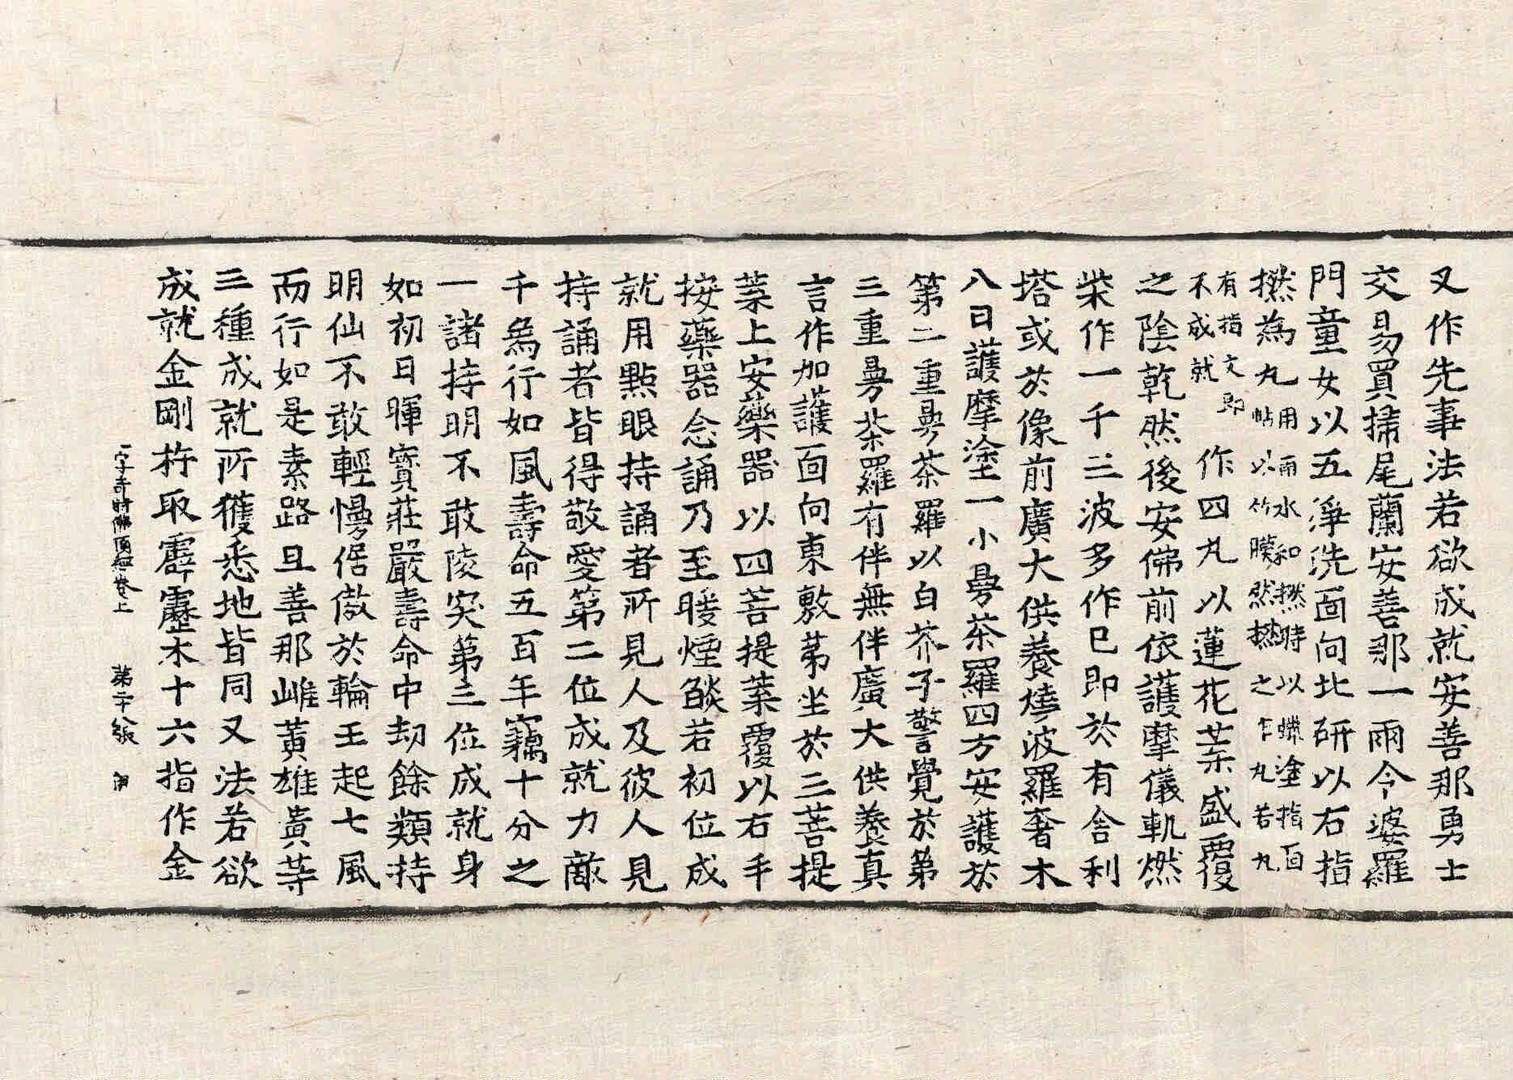 又作先事法若欲成就安善那勇士
交易買掃尾蘭安善那一兩令婆羅
門童女以五淨洗面向北研以右指
撚為丸用雨水和撚時以蠟塗指面
帖以竹膜然撚之作丸若丸
有指文即
不成就
作四丸以蓮花葉盛覆
之陰乾然後安佛前依護摩儀軌燃
柴作一千三波多作已即於有舍利
塔或於像前廣大供養燒波羅奢木
八日護摩塗一小曼荼羅四方安護於
第二重曼荼羅以白芥子警覺於第
三重曼荼羅有伴無伴廣大供養真
言作加護面向東敷茅坐於三菩提
葉上安藥器以四菩提葉覆以右手
按藥器念誦乃至暖煙焰若初位成
就用點眼持誦者所見人及彼人見
持誦者皆得敬愛第二位成就力敵
千象行如風壽命五百年竊十分之
一諸持明不敢陵突第三位成就身
如初日暉寶莊嚴壽命中劫餘類持
明仙不敢輕慢倨傲於輪王起七風
而行如是素路旦善那雌黃雄黃等
三種成就所獲悉地皆同又法若欲
成就金剛杵取霹靂木十六指作金
一字奇特佛頂經卷上 第二十張